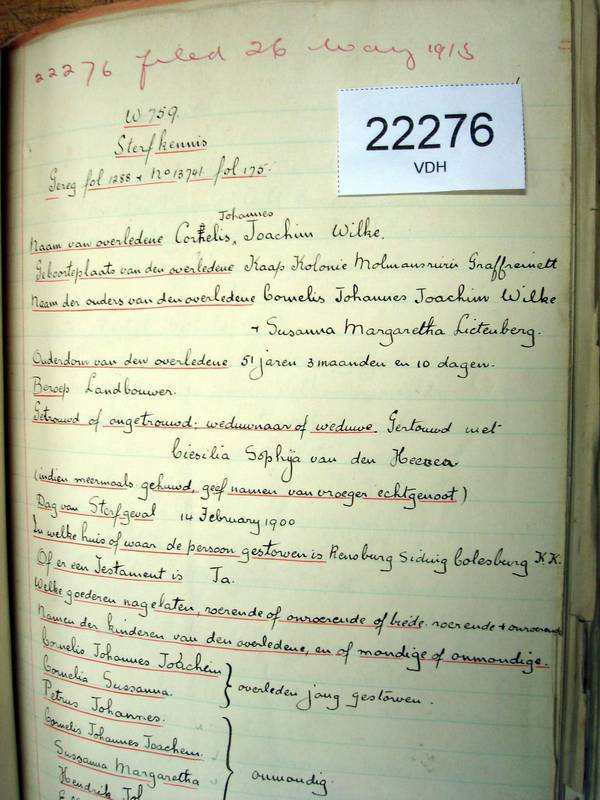 22276 filed 26 May 1913
22276
VDH
W 759.
Sterfkennis
Gereg fol 1288 & No 13741 fol 175.
Johannes
Naam van overledene Cornelis, Joachim Wilke.
Geboorteplaats van den overledene Kaap Kolonie Molmansrivir Graffreinett
Naam der ouders van den overledene Cornelis Johannes Joachim Wilke
+ Susanna Margaretha Lictenberg.
Ouderdom van den overledene 51 jaren 3 maanden en 10 dagen.
Beroep Landbouwer.
Getrouwd of ongetrouwd; weduwnaar of weduwe. Gertouwd met
Ciesilia Sophija van den Heever
(indien meermaals gehuwd, geef namen van vroeger echtgenoot)
Dag van Sterfgeval 14 February 1900
In welke huis of waar de persoon gestorven is Rensburg Siding Colesburg K.K.
Of er een Testament is Ja.
Welke goederen nagelaten, roerende of onroerende of biede. roerende + onroerend
Namen der kinderen van den overledene, en of mondige of onmondige.
Cornelis Johannes Joachem
Cornelia Sussanna.
overleden jong gestorven.
Petrus Johannes.
Cornelis Johannes Joachem.
Sussanna Margaretha
onmondig.
Hendrik